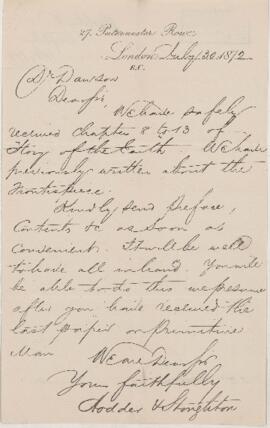 27, Paternoster Row,
London, July 30 1872
E.C.
Dr Dawson
Dear Sir,
We have safely
received Chapter 8 to 13 of
Story of the Earth We have
previously written about the
Frontispiece.
Kindly send Preface,
Contents &c as soon as
convenient. It will be well
to have all in hand. You will
be able to do this we presume
after you have received the
last paper on primitive
Man
We are Dear Sir
Yours faithfully
Hodder & Stoughton